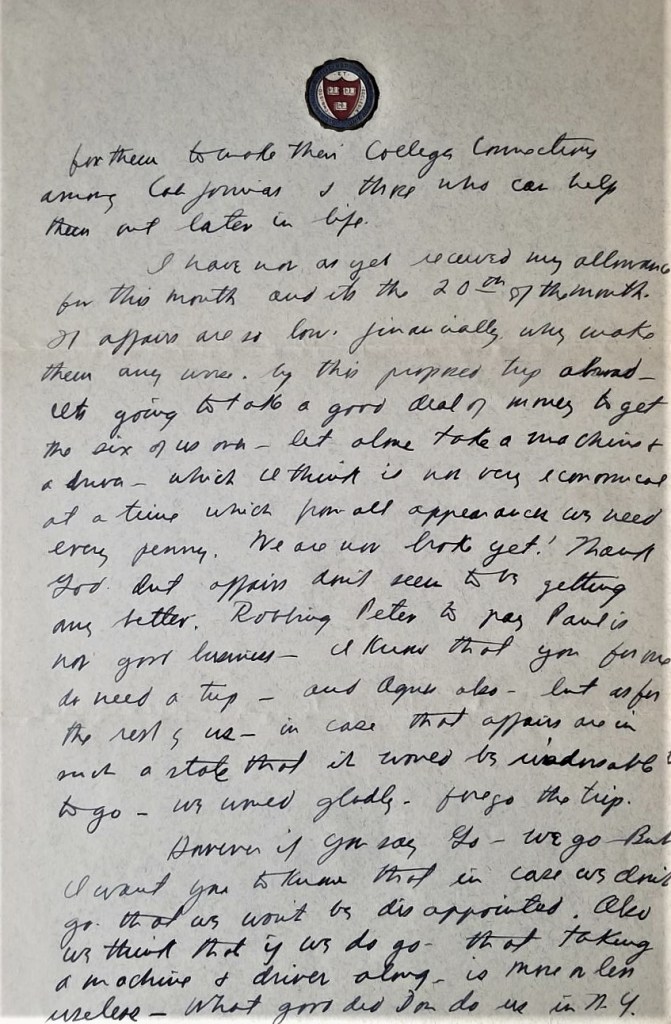 for them to make their College Connections
among Californias & those who can help
them out later in life.
I have not as yet received my allowance
for this month and its the 20th of the month.
If affairs are so low. financially, why make
them any worse. by this proposed trip abroad—
Its going to take a good deal of money to get
the six of us over — let alone take a machine &
a driver — which I think is not very economical
at a time which from all appearances we need
every penny. We are not broke yet! Thank
God. but affairs don't seem to be getting
any better. Robbing Peter to pay Paul is
not good business — I know that you for one
do need a trip — and Agnes also — but as for
the rest of us — in case that affairs are in
such a state that it would be inadvisable
to go — we would gladly. forego the trip.
However if you say Go — we go — But
I want you to know that in case we don't
go. that we won't be disappointed. Also
we think that if we do go — that taking
a machine & driver along — is more or less
useless — What good did Don do us in N.Y.